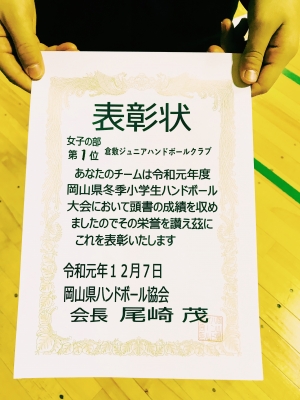 表彰状
女子の部
第1位 倉敷ジュニアハンドボールクラブ
あなたのチームは令和元年度
岡山県冬季小学生ハンドボール
大会において頭書の成績を収め
ましたのでその栄誉を讃え茲に
これを表彰いたします
令和元年12月7日
岡山県ハンドボール協会
会長 尾崎 茂